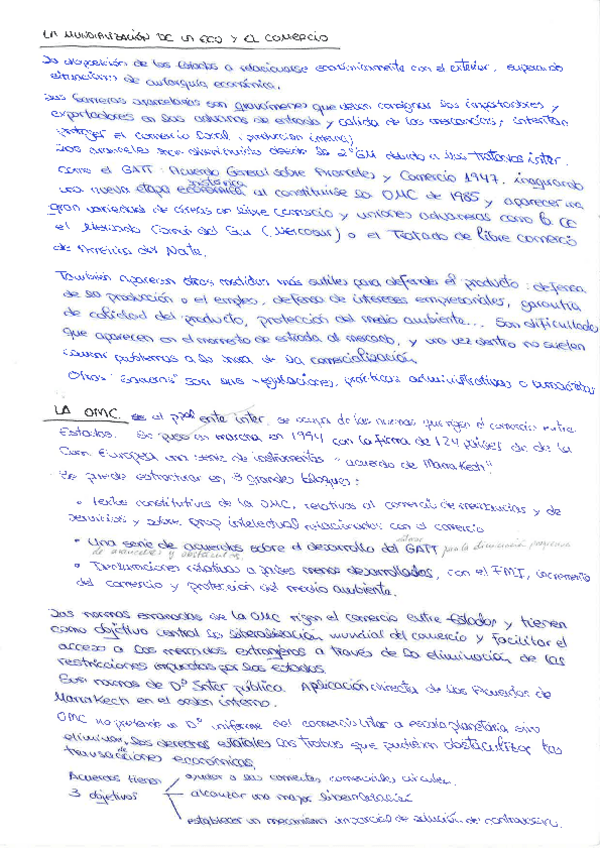 LA MUNDIALIZACIÓN DE LA ECO Y EL COMERCIO
La disposición de los Estados a relacionarse económicamente con el exterior, superando
situaciones de autarquía económica.
Las barreras arancelarias son gravámenes que deben consignar los importadores y
exportadores en las aduanas de entrada y salida de las mercancías, intentan
proteger el comercio local, producción interna)
Los aranceles han disminuido desde la 2ª GM debido a los tratados inter.
como el GATT: Acuerdo General sobre Aranceles y Comercio 1947. inaugurando
una nueva etapa histórica económica al constituirse la OMC de 1985 y aparecer una
gran variedad de áreas de libre comercio y uniones aduaneras como la CE
el Mercado Común del Sur (Mercosur) o el Tratado de libre comercio
de América del Norte.
También aparecen otras medidas más sutiles para defender el producto: defensa
de la producción o el empleo, defensa de intereses empresariales, garantía
de calidad del producto, protección del medio ambiente... Son dificultades
que aparecen en el momento de entrada al mercado, y una vez dentro no suelen
causar problemas a la hora de la comercialización
Otras "barreras" son sus regulaciones, prácticas administrativas o
LA OMC. es el ppal ente inter. se ocupa de las normas que rigen el comercio entre
Estados. Se puso en marcha en 1994 con la firma de 124 países de la
Com. Europea una serie de instrumentos "acuerdo de Marrakech".
Se puede estructurar en 3 grandes bloques:
• textos constitutivos de la OMC, relativos al comercio de mercancías y de
servicios y sobre prop intelectual relacionados con el comercio
• Una serie de acuerdos sobre el desarrollo del GATT para la disminución progresiva
de aranceles y obstáculos.
• Declaraciones relativas a países menos desarrollados, con el FMI, incremento
del comercio y protección del medio ambiente.
Las normas emanadas de la OMC rigen el comercio entre Estados y tienen
como objetivo central la liberalización mundial del comercio y facilitar el
acceso a los mercados extranjeros a través de la eliminación de las
restricciones impuestas por los estados.
Son normas de Dº Inter pública. Aplicación directa de los Acuerdos de
Marrakech en el orden interno.
OMC no pretende un Dº uniforme del comercio inter a escala planetaria sino
eliminar de los derechos estatales las trabas que pudieran obstaculizar las
transacciones económicas.
Acuerdos tienen 3 objetivos
ayudar a las corrientes comerciales circulen
alcanzar una mayor liberalización
establecer un mecanismo imparcial de solución de controversias.